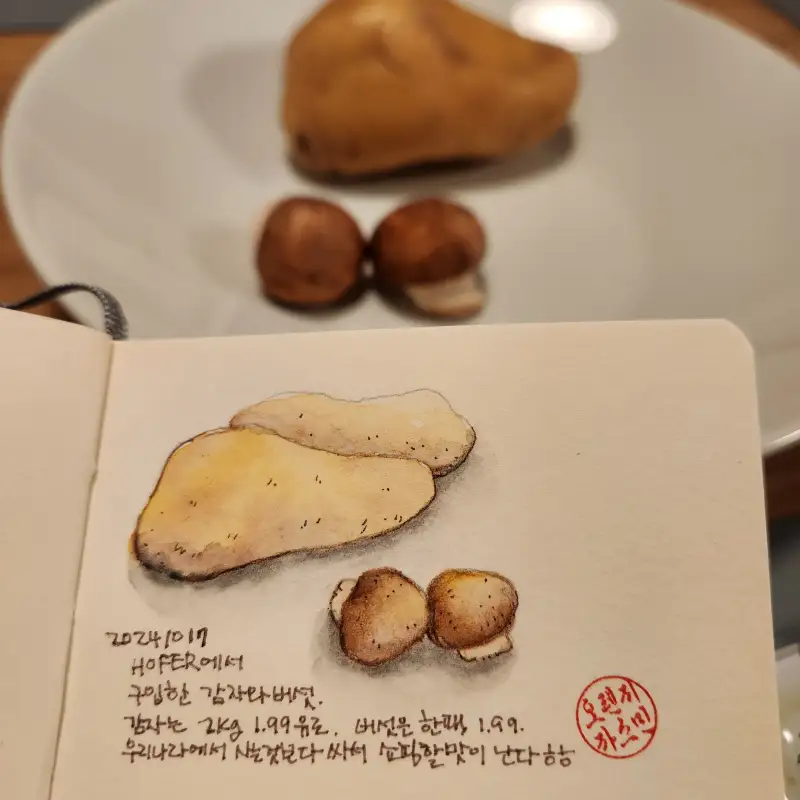 20241017
HOFER에서
구입한 감자와 버섯.
감자는 2kg 1.99유로. 버섯은 한팩 1.99.
우리나라에서 사는것보다 싸서 쇼핑할맛이 난다 흠흠
오렌지
까스민